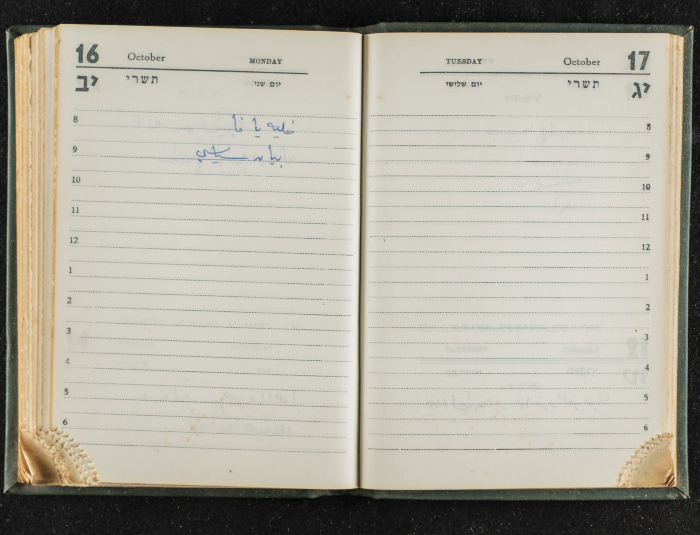 16 October MONDAY
יב תשרי יום שני
8
خلية يافا
9
بيان سياسي
10
11
12
1
2
3
4
5
6
TUESDAY October 17
יום שלישי תשרי יג
8
9
10
11
12
1
2
3
4
5
6